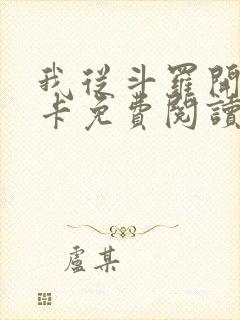 我從斗羅開
卡免費閱讀
盧某